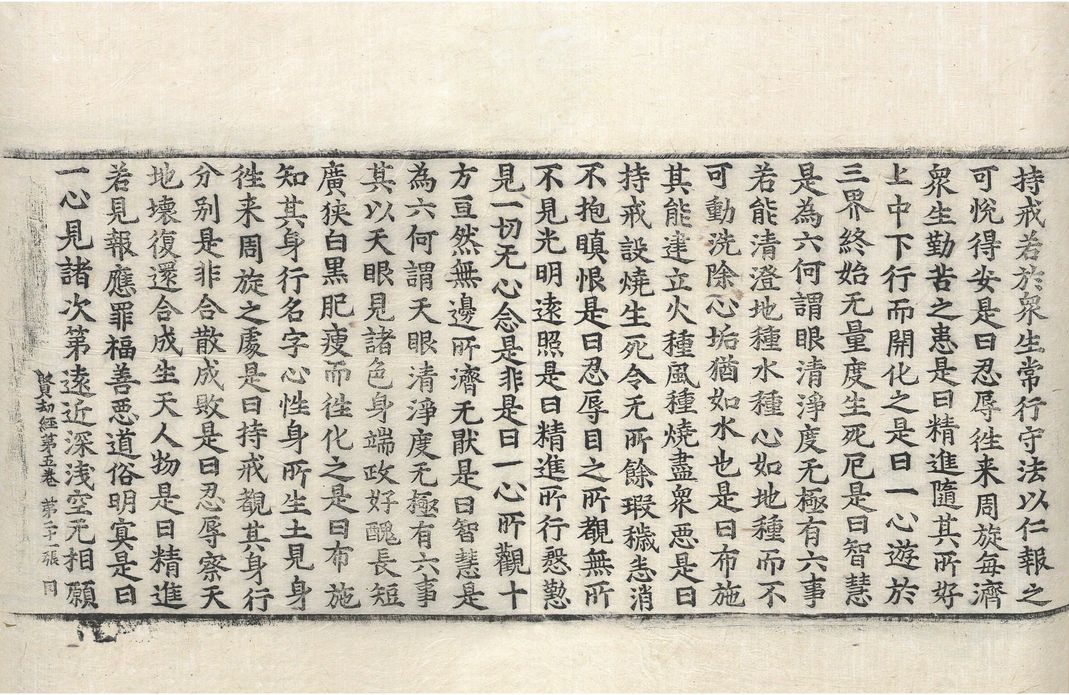 持戒若於衆生常行守法以仁報之
可悅得安是曰忍辱徃来周旋每濟
衆生勤苦之患是曰精進隨其所好
上中下行而開化之是曰一心遊於
三界終始无量度生死厄是曰智慧
是為六何謂眼清淨度无極有六事
若能清澄地種水種心如地種而不
可動洗除心垢猶如水也是曰布施
其能建立火種風種燒盡衆恶是曰
持戒設燒生死令无所餘瑕穢恙消
不抱瞋恨是曰忍辱目之所觀無所
不見光明遠照是曰精進所行慇懃
見一切无心念是非是曰一心所觀十
方亘然無邊所濟无猒是曰智慧是
為六何謂天眼清淨度无極有六事
其以天眼見諸色身端政好醜長短
廣狹白黒肥瘦而徃化之是曰布施
知其身行名字心性身所生土見身
徃来周旋之處是曰持戒觀其身行
分別是非合散成敗是曰忍辱察天
地壞復還合成生天人物是曰精進
若見報應罪福善恶道俗明冥是曰
一心見諸次第遠近深浅空无相願
賢劫經第五卷 第二十張 同